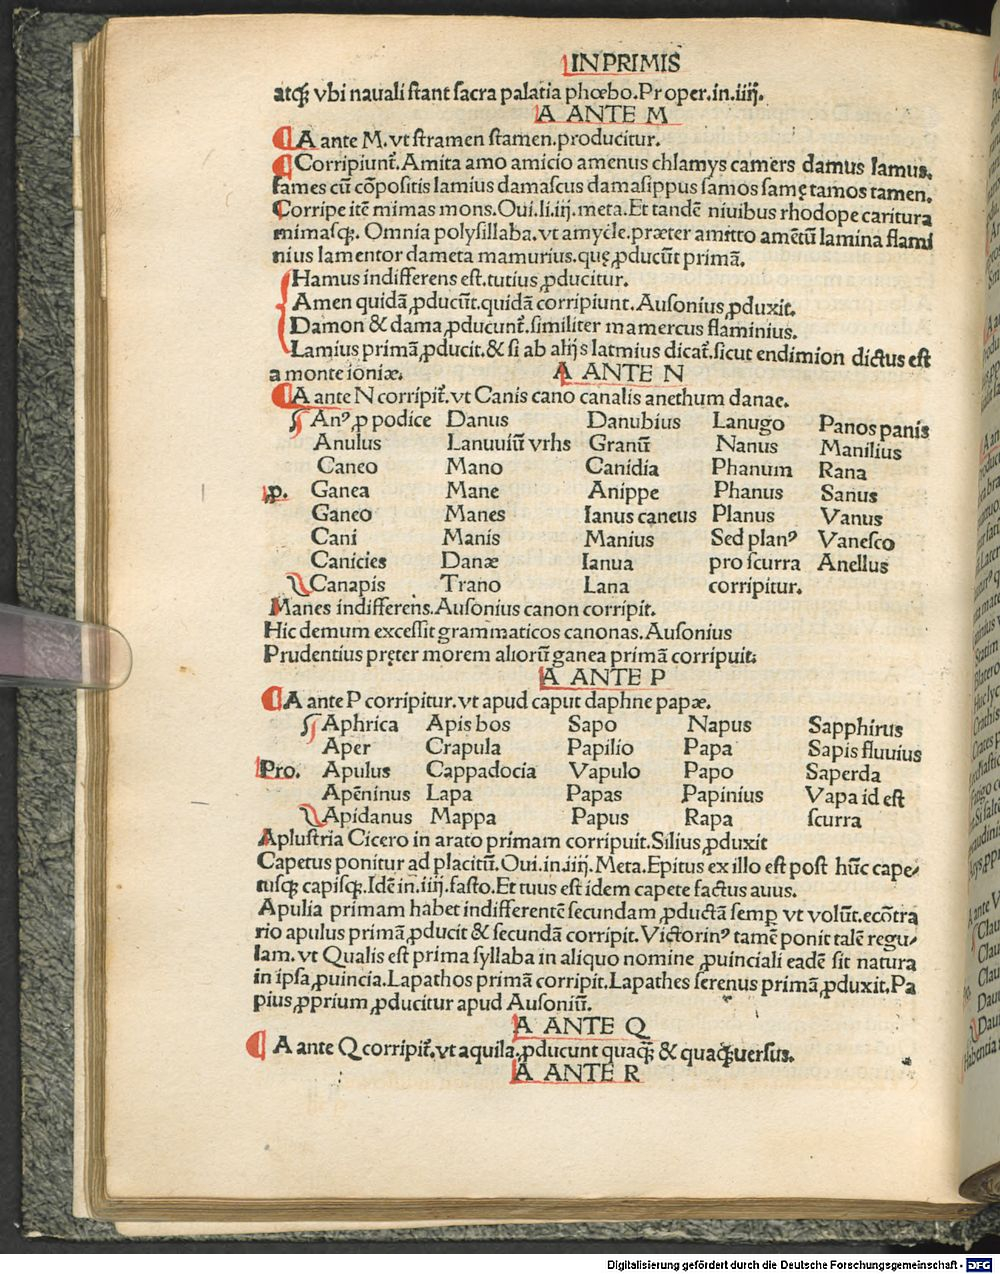 INPRIMIS
atqꝫ vbi nauali ſtant ſacra palatia phœbo.Proper.in.iiij.
A ANTE M
A ante M.vt ſtramen ſtamen.producitur.
Corripiunt̃.Amita amo amicio amenus chlamys camers damus lamus.
fames cũ cõpoſitis lamius damaſcus damaſippus ſamos ſamę tamos tamen.
Corripe itẽ mimas mons.Oui.li.iij.meta.Et tandẽ niuibus rhodope caritura
mimaſqꝫ. Omnia polyſillaba.vt amycle.præter amitto amẽtũ lamina flami
nius lamentor dameta mamurius.quę ꝓducũt primã.
Hamus indifferens eſt.tutius ꝓducitur.
Amen quidã ꝓducũt.quidã corripiunt.Auſonius ꝓduxit.
Damon & dama ꝓducunt̃.ſimiliter mamercus flaminius.
Lamius primã ꝓducit.& ſi ab alijs latmius dicat̃.ſicut endimion dictus eſt
a monte ioniæ.
A ANTE N
A ante N corripit̃.vt Canis cano canalis anethum danae.
Anꝰ ꝓ podice Danus Danubius Lanugo Panos panis
Anulus Lanuuiũ vrbs Granũ Nanus Manilius
Caneo Mano Canidia Phanum Rana
p. Ganea Mane Anippe Phanus Sanus
Ganeo Manes Ianus caneus Planus Vanus
Cani Manis Manius Sed planꝰ Vaneſco
Canicies Danæ Ianua pro ſcurra Anellus
Canapis Trano Lana corripitur.
Manes indifferens.Auſonius canon corripit.
Hic demum exceſſit grammaticos canonas.Auſonius
Prudentius pręter morem aliorũ ganea primã corripuit.
A ANTE P
A ante P corripitur.vt apud caput daphne papæ.
Aphrica Apis bos Sapo Napus Sapphirus
Aper Crapula Papilio Papa Sapis fluuius
Pro. Apulus Cappadocia Vapulo Papo Saperda
Apẽninus Lapa Papas Papinius Vapa id eſt
Apidanus Mappa Papus Rapa ſcurra
Apluſtria Cicero in arato primam corripuit.Silius ꝓduxit
Capetus ponitur ad placitũ.Oui.in.iiij.Meta.Epitus ex illo eſt poſt hũc cape⸗
tuſqꝫ capiſqꝫ.Idẽ in.iiij.faſto.Et tuus eſt idem capete factus auus.
Apulia primam habet indifferentẽ ſecundam ꝓductã ſemꝑ vt volũt.ecõtra
rio apulus primã ꝓducit & ſecundã corripit.Victorinꝰ tamẽ ponit talẽ regu⸗
lam.vt Qualis eſt prima ſyllaba in aliquo nomine ꝓuinciali eadẽ ſit natura
in ipſa ꝓuincia.Lapathos primã corripit.Lapathes ſerenus primã ꝓduxit.Pa
pius ꝓprium ꝓducitur apud Auſoniũ.
A ANTE Q
A ante Q corripit̃.vt aquila.ꝓducunt quaqꝫ̃ & quaqꝫverſus.
A ANTE R
Digitalisierung gefördert durch die Deutsche Forschungsgemeinschaft - DFG